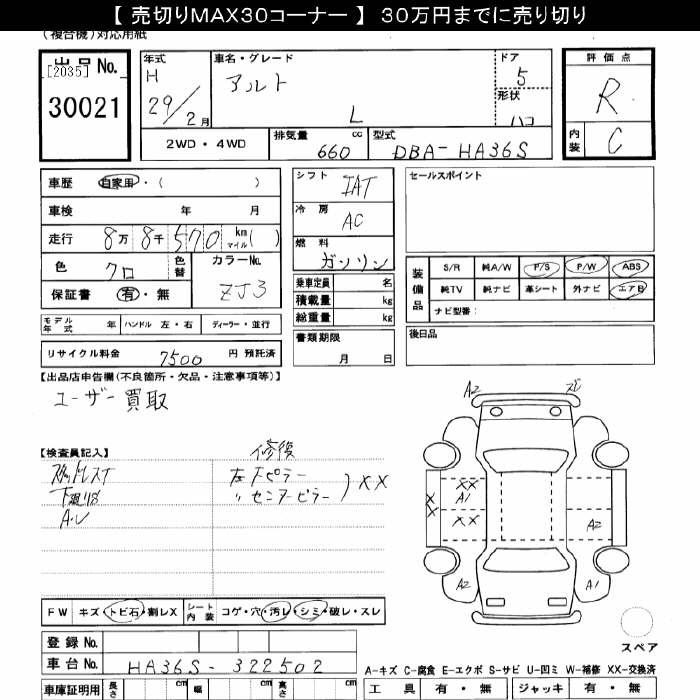 【 売切りMAX30コーナー 】 30万円までに売り切り
(複合機)対応用紙
出品No.
[2035]
30021
年式
H
29/2月
車名・グレード
アルト
L
ドア
5
形状
ハコ
評価点
R
内装
C
2WD・4WD
排気量
660 cc
型式
DBA-HA36S
車歴 自家用・( )
車検 年 月
走行 8万8千570 km マイル( )
色 クロ
色替
カラーNo.
ZJ3
保証書 有・無
モデル年式 年 ハンドル 左・右 ディーラー・並行
リサイクル料金 7500 円 預託済
シフト
IAT
冷房
AC
燃料
ガソリン
乗車定員 名
積載量 kg
総重量 kg
書類期限
月 日
セールスポイント
装備品
S/R 純A/W P/S P/W ABS
純TV 純ナビ 革シート 外ナビ エアB
ナビ型番:
後日品
【出品店申告欄(不良箇所・欠品・注意事項等)】
ユーザー買取
【検査員記入】
修復
左Fピラー
〃センターピラー
)××
A・U
A2
××
A1
××
××
A2
A2
A1
スペア
FW キズ・トビ石・割レX
シート内装 コゲ・穴・汚レ・シミ・破レ・スレ
登録No.
車台No. HA36S-322502
車庫証明用 長さ cm 幅 cm 高さ cm
A-キズ C-腐食 E-エクボ S-サビ U-凹ミ W-補修 XX-交換済
工具 有・無 ジャッキ 有・無